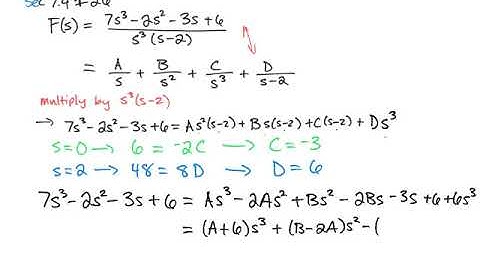 Sec 7.4 # 26
F(s) = (7s³ - 2s² - 3s + 6) / (s³(s-2))
= A/s + B/s² + C/s³ + D/(s-2)
multiply by s³(s-2)
→ 7s³ - 2s² - 3s + 6 = As²(s-2) + Bs(s-2) + C(s-2) + Ds³
s=0 → 6 = -2C → C = -3
s=2 → 48 = 8D → D = 6
7s³ - 2s² - 3s + 6 = As³ - 2As² + Bs² - 2Bs - 3s + 6 + 6s³
= (A+6)s³ + (B-2A)s² - (